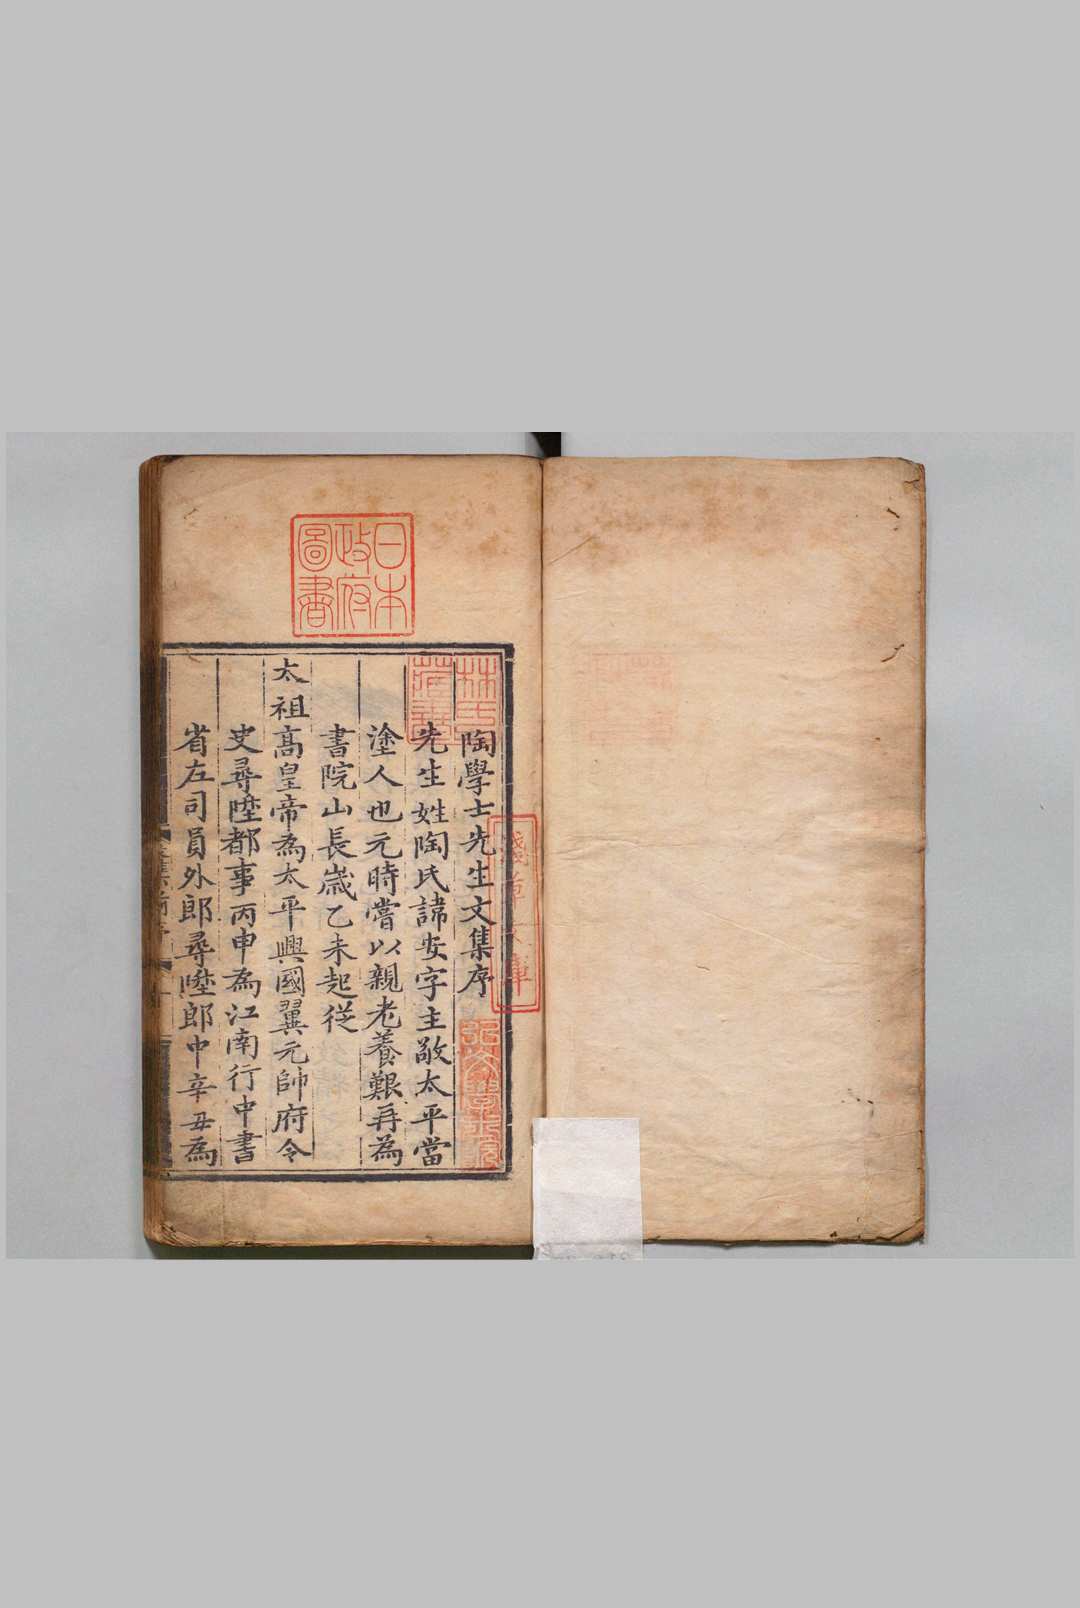 陶學士先生文集序
先生姓陶氏諱安字主敬太平當
塗人也元時嘗以親老養艱再為
書院山長歲乙未起從
太祖高皇帝為太平興國翼元帥府令
史尋陞都事丙申為江南行中書
省左司員外郎尋陞郎中辛丑為
日本
政府
圖書
林氏
藏書
淺草文庫